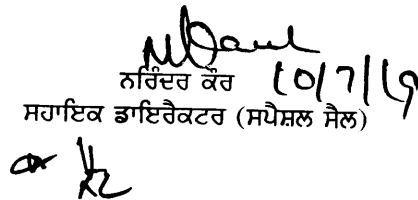 ਨਰਿੰਦਰ ਕੌਰ 10/7/19
ਸਹਾਇਕ ਡਾਇਰੈਕਟਰ (ਸਪੈਸ਼ਲ ਸੈਲ)